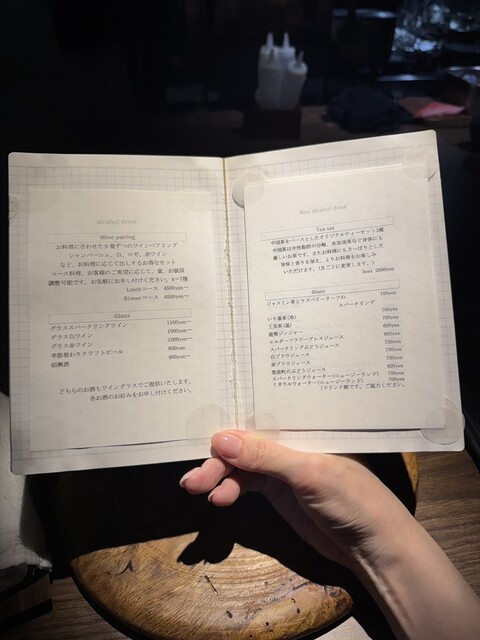 alcohol drink
Wine pairing
お料理に合わせた少量ずつのワインペアリング
シャンパーニュ、白、ロゼ、赤ワイン
など、お料理に応じて出しするお得なセット
コース料理、お客様のご希望に応じて、量、お値段
調整可能です。お気軽にお申し付けください。4〜7種
Lunchコース 4500yen〜
Dinnerコース 6500yen〜
Glass
グラススパークリングワイン 1100yen〜
グラス白ワイン 1000yen〜
グラス赤ワイン 1000yen〜
季節替わりクラフトビール 800yen
紹興酒 800yen〜
どちらのお酒もワイングラスでご提供いたします。
各お酒のお好みをお申し付けください。
Non alcohol drink
Tea set
中国茶をベースとしたオリジナルティーセット2種
中国茶は中性脂肪の分解、美容効果など身体にも
優しいお茶です。またお料理にもさっぱりとした
旨味と香りを加え、よりお料理をお楽しみ
いただけます。(月ごとに変更します。)
2set 2000yen
Glass
ジャスミン茶とラズベリーリーフの 700yen
スパークリング
いり番茶(冷) 700yen
工芸茶(温) 700yen
能勢ジンジャー 800yen
エルダーフラワープレスジュース 800yen
スパークリングぶどうジュース 750yen
白ブドウジュース 750yen
赤ブドウジュース 700yen
ぶどうジュース
スパークリングウォーター(ニュージーランド) 750yen
ミネラルウォーター(ニュージーランド) 700yen
(1ドリンク制です。ご協力ください。)